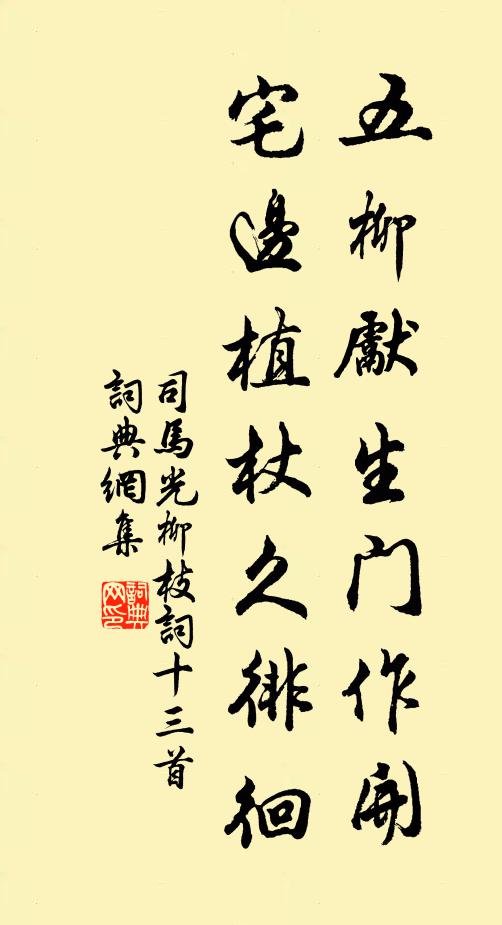 五柳獻生門作開
宅邊植杖久徘徊
司馬光柳枝詞十三首
詞典網集
詞典網印